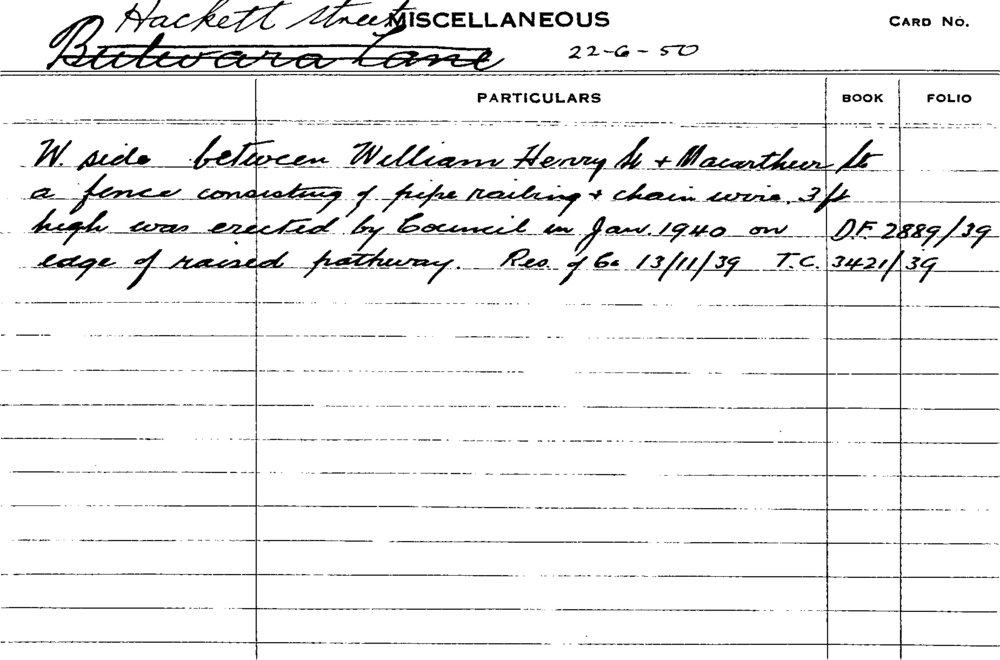 Hackett Street MISCELLANEOUS CARD NO.
Bulwara Lane 22-6-50
PARTICULARS BOOK FOLIO
W. side between William Henry St + Macarthur St
a fence consisting of pipe railing + chain wire. 3 ft
high was erected by Council in Jan. 1940 on D.F. 2889/39
edge of raised pathway. Res. of Co 13/11/39 T.C. 3421/39